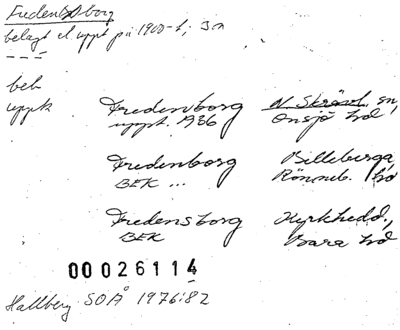 Fredensborg
belagt el uppt på 1900-t, Sn
---
beb
uppk
Fredensborg N Skrävl. sn,
uppt. 1936 Onsjö hd
Fredenborg Billeberga
BEK ... Rönneb. hd
Fredensborg Kyrkhedd.,
BEK Bara hd
00026114
Hallberg SOÅ 1976:82